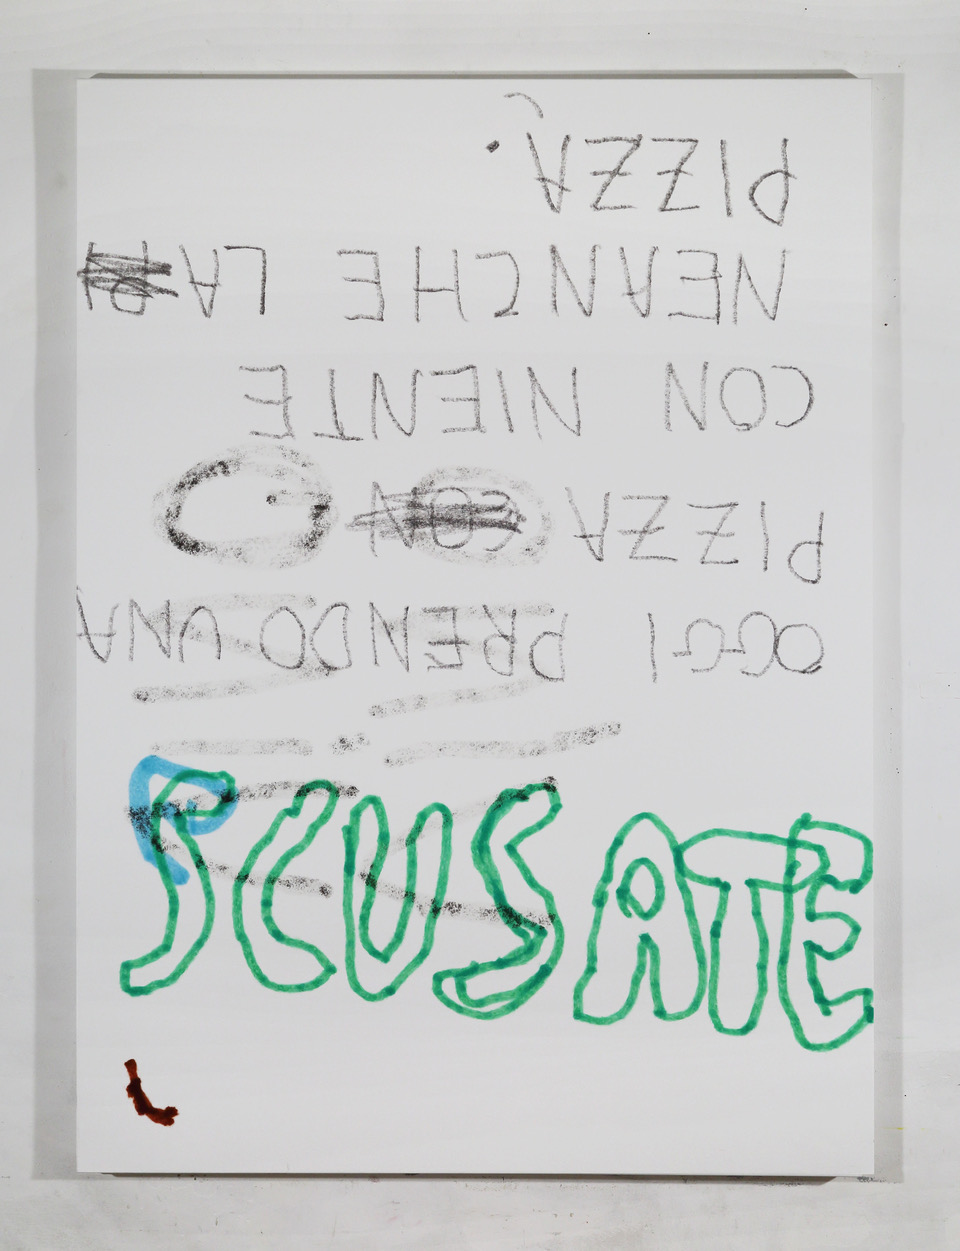 SCUSATE
OGGI PRENDO UNA
PIZZA
CON NIENTE
NEANCHE LA
PIZZA.